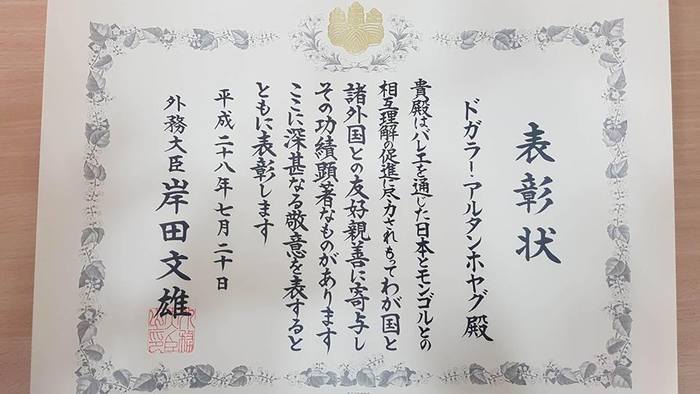 表彰状
ドガラー・アルタンホヤグ殿
貴殿はバレエを通じた日本とモンゴルとの
相互理解の促進に尽力されもってわが国と
諸外国との友好親善に寄与し
その功績顕著なものがあります
ここに深甚なる敬意を表すると
ともに表彰します
平成二十八年七月二十日
外務大臣 岸田文雄